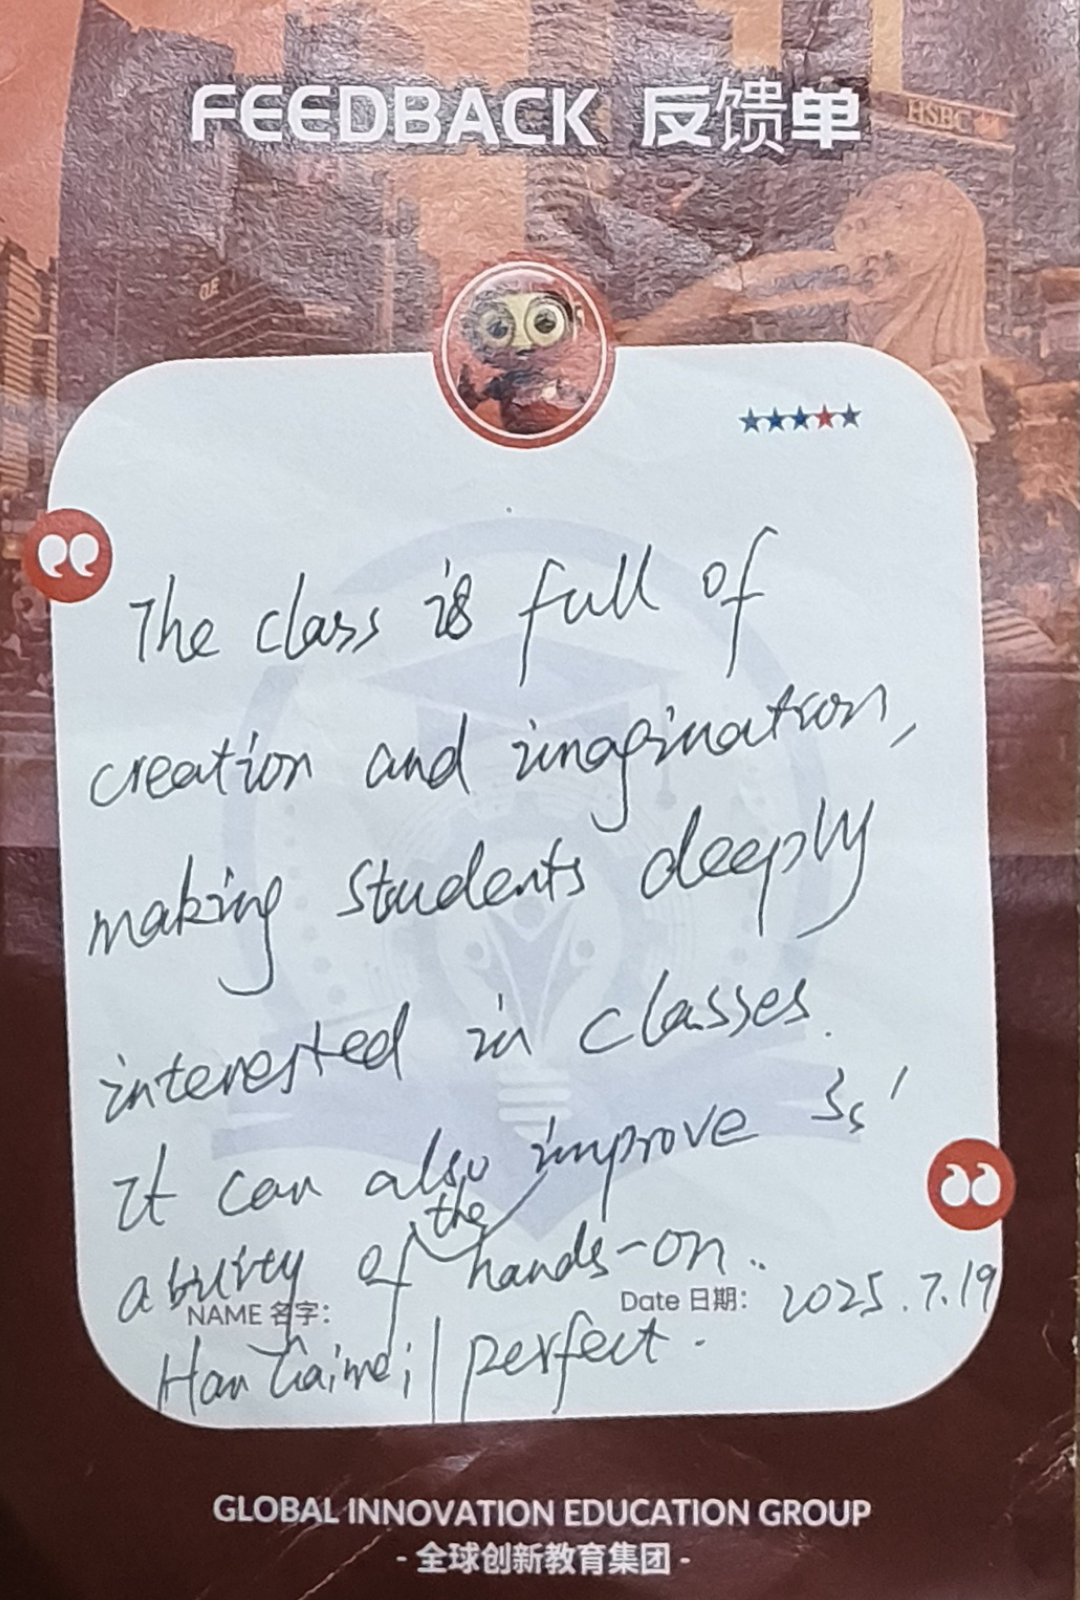 FEEDBACK 反馈单
HSBC
The class is full of
creation and imagination,
making students deeply
interested in classes.
It can also improve Ss'
ability of the hands-on..
NAME 名字:
Date 日期: 2025.7.19
Han perfect.
GLOBAL INNOVATION EDUCATION GROUP
- 全球创新教育集团 -